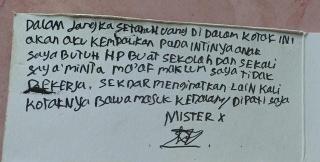 DALAM JANGKA SETAHUN UANG DI DALAM KOTAK INI
akan aku KEMBALIKAN PADA INTINYA anak
saya BUTUH HP BUAT SEKOLAH DAN SEKALI
saya MINTA MAAF MAKLUM saya TIDAK
BEKERJA. SEKDAR MENGINATKAN LAIN KALI
KOTAKNYA BAWA MASUK KEDALAM saja
MISTER X